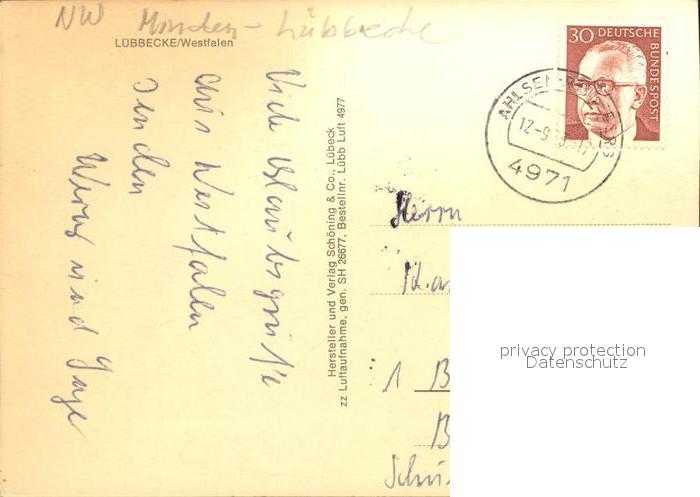 NW Minden-Lübbecke
LÜBBECKE/Westfalen
Viele Urlaubsgrüße
aus Westfalen
senden
Werner und Inge
Hersteller und Verlag Schöning & Co., Lübeck
zz Luftaufnahme, gen. SH 26677, Bestellnr. Lübb Luft 4977
30 DEUTSCHE
BUNDESPOST
12-9
4971
Herrn
1 B
B
privacy protection
Datenschutz